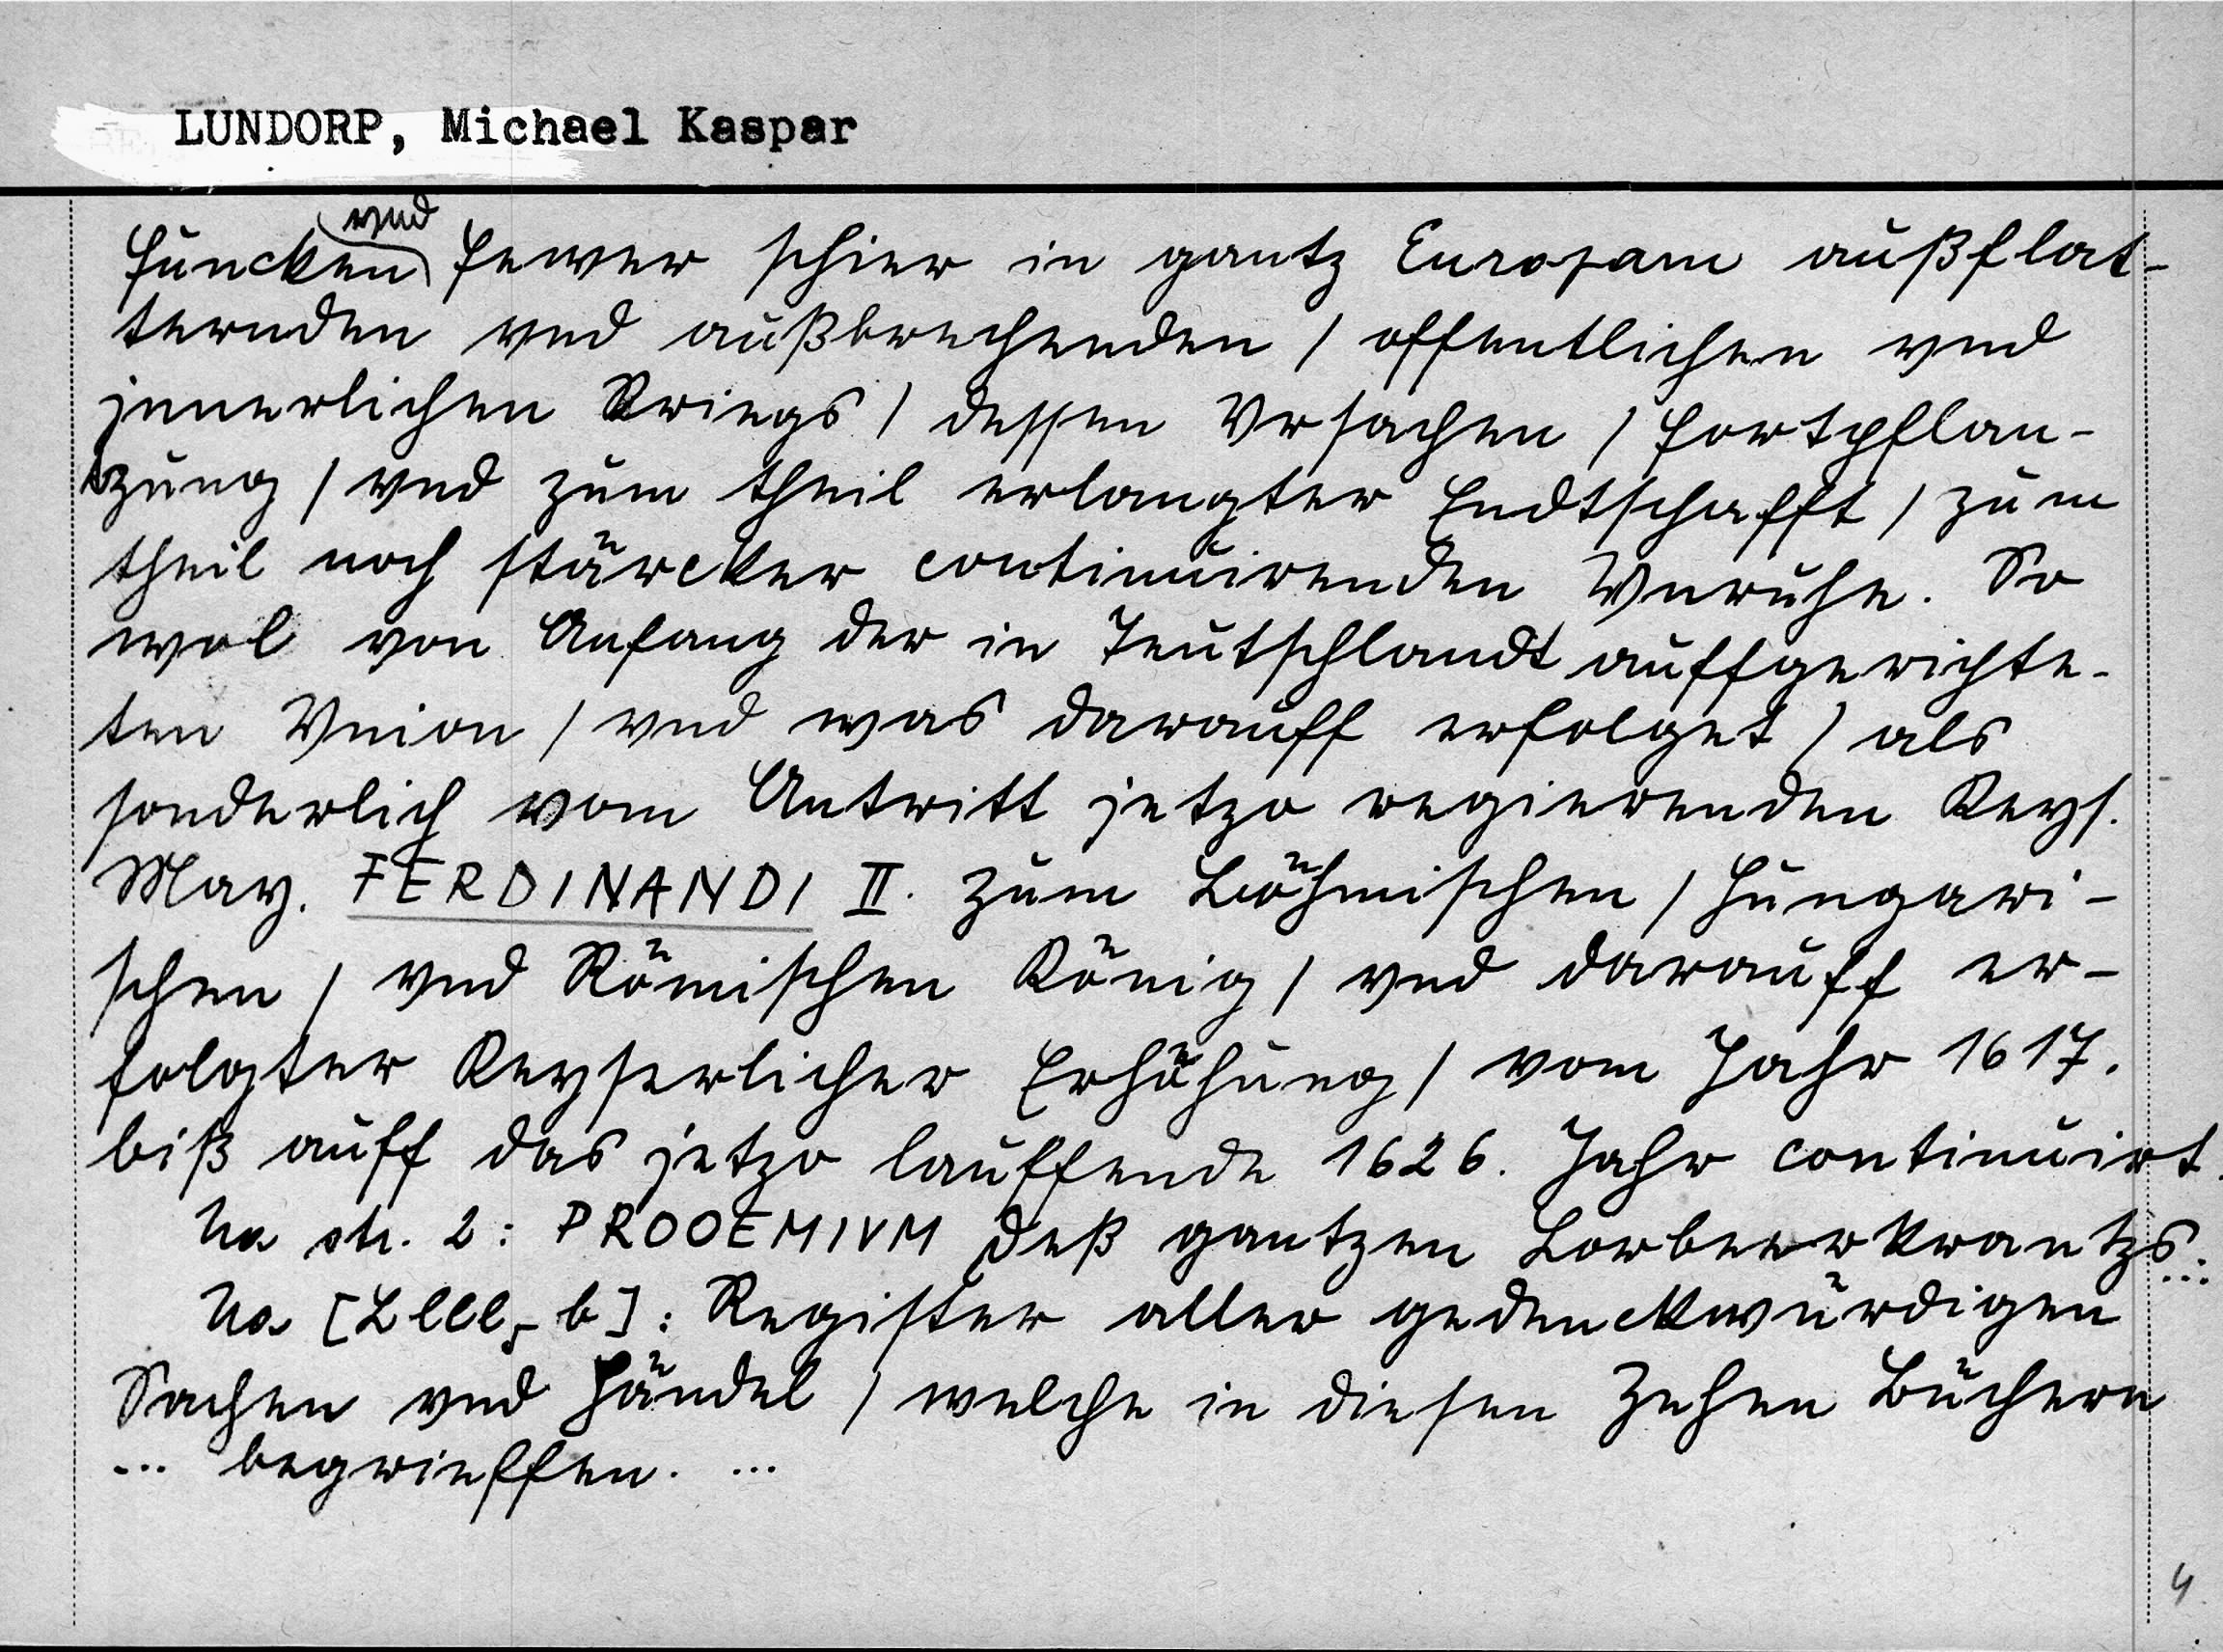 LUNDORP, Michael Kaspar
vnd
Füncken Fewer schier in gantz Europam außflat-
ternden vnd außbrechenden / offentlichen vnd
jnnerlichen Kriegs / dessen Vrsachen / Fortpflan-
tzung / vnd zum theil erlangter Endtschafft / zum
theil noch stärcker continuirenden Vnruhe. So
wol von Anfang der in Teutschlandt auffgerichte-
ten Vnion / vnd was darauff erfolget / als
sonderlich vom Antritt jetzo regierenden Keys.
May. FERDINANDI II. zum Böhmischen / Hungari-
schen / vnd Römischen König / vnd darauff er-
folgter Keyserlicher Erhöhung / vom Jahr 1617.
biß auff das jetzo lauffende 1626. Jahr continuirt.
Na str. 2: PROOEMIVM deß gantzen Lorbeerkrantzs...
Na [Llll5 b]: Register aller gedenckwürdigen
Sachen vnd Händel / welche in diesen Zehen Büchern
... begrieffen. ...
4